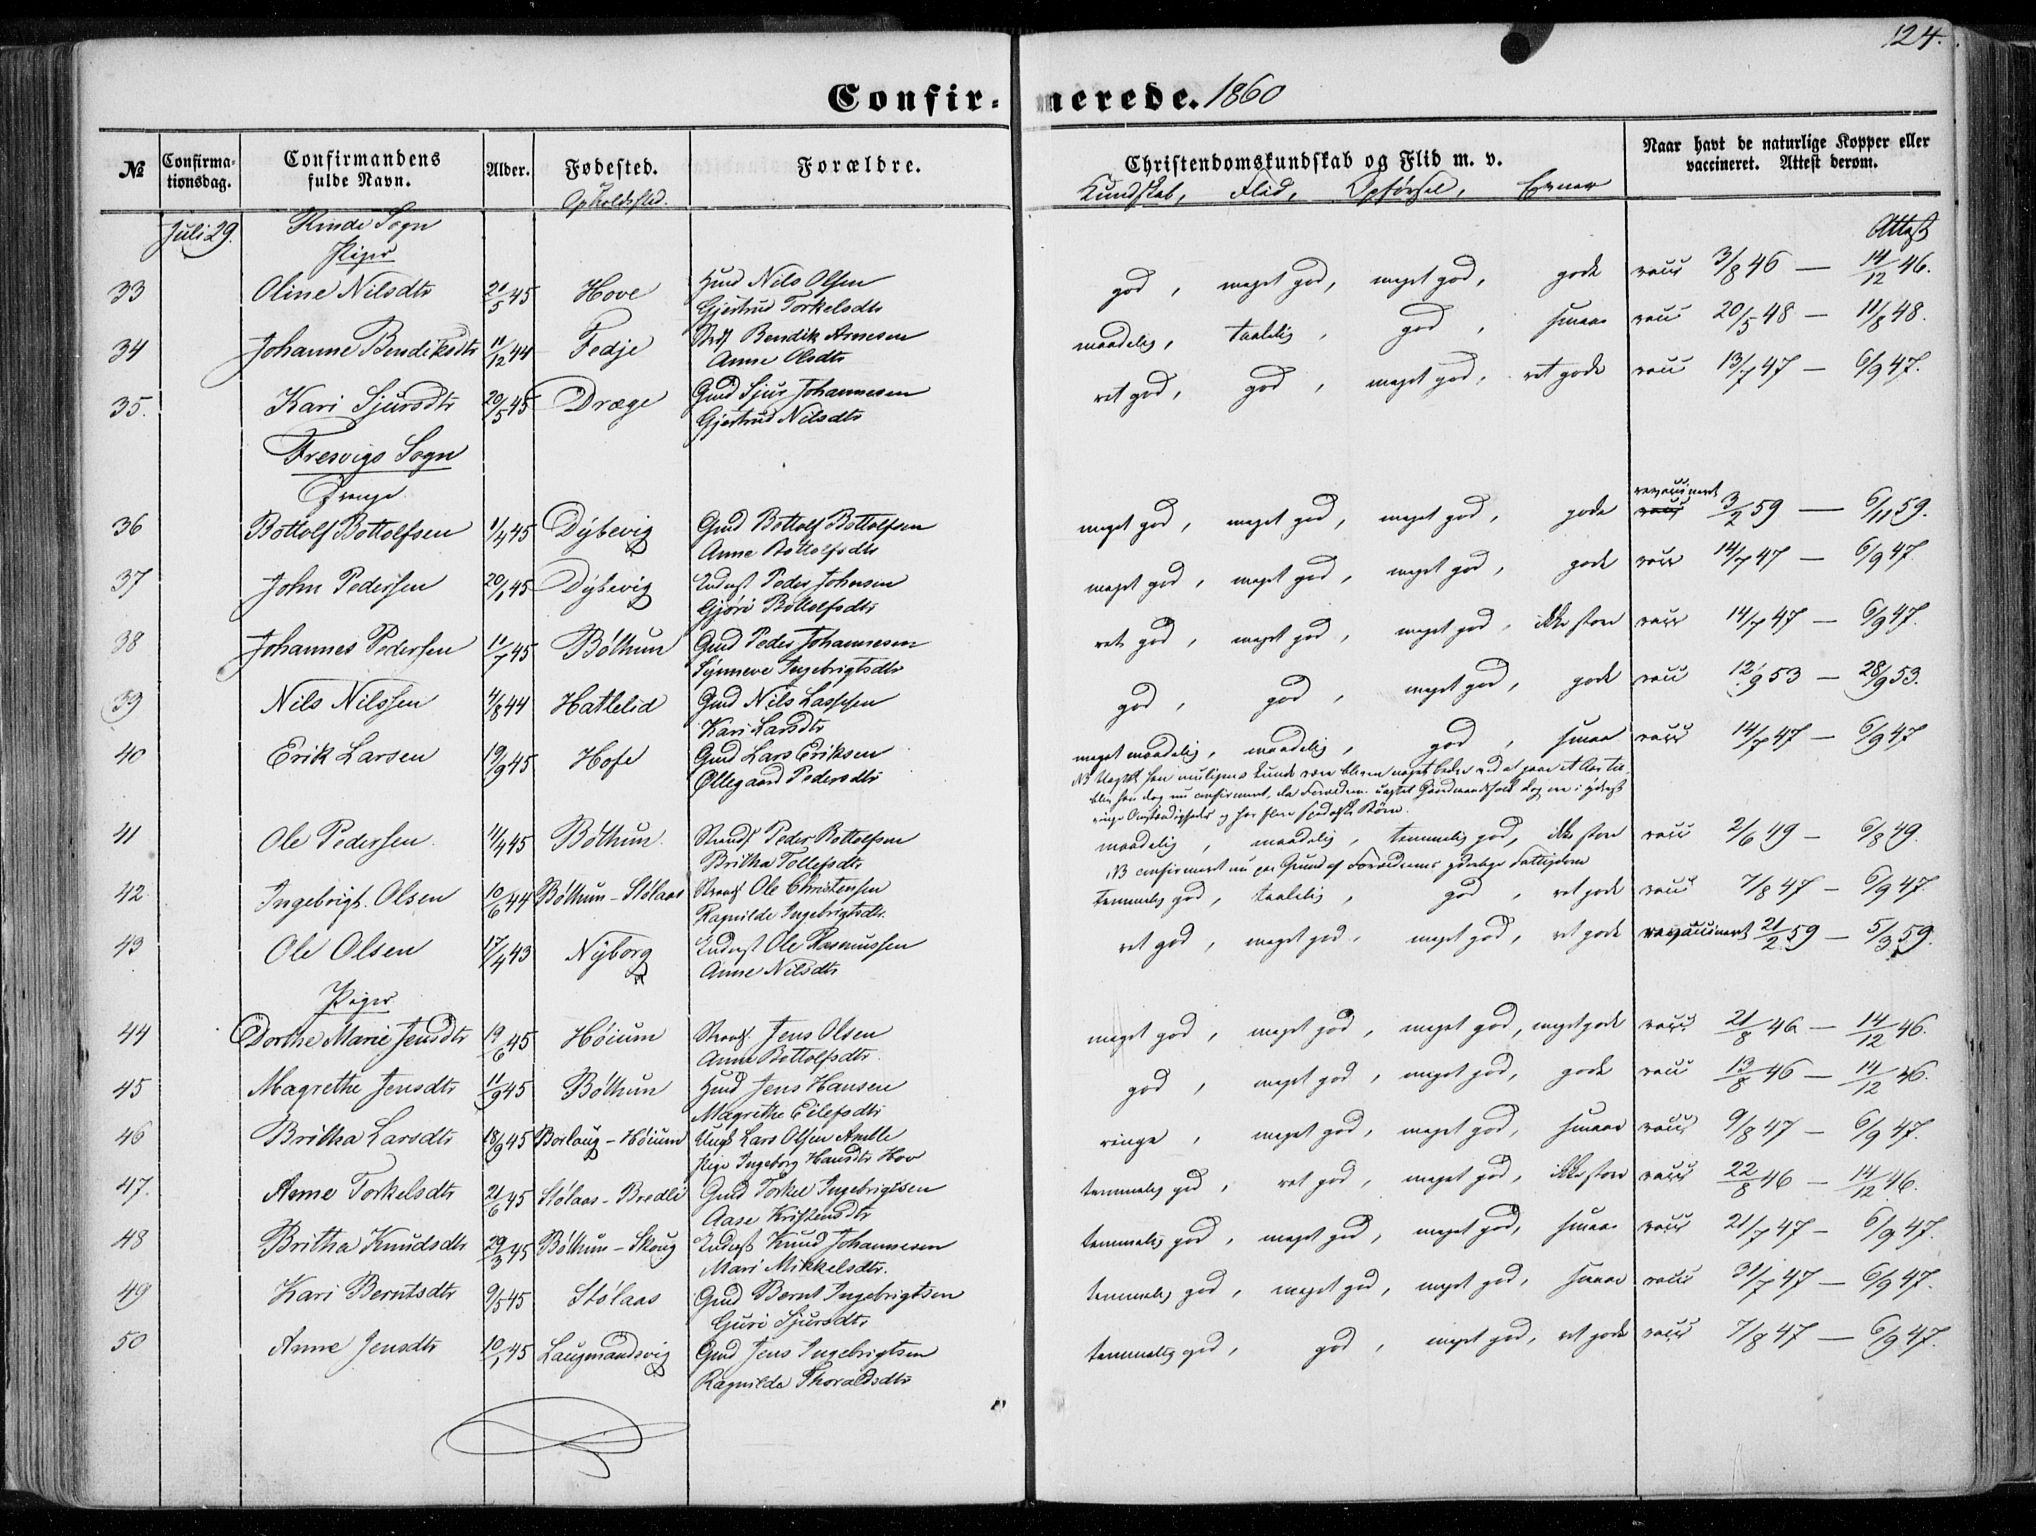 124.
Confirmerede. 1860
№ Confirmationsdag. Confirmandens fulde Navn. Alder. Fødested. Opholdssted. Forældre. Christendomskundskab og Flid m. v. Kundskab, Flid, Opførsel, Evner Naar havt de naturlige Kopper eller vaccineret. Attest derom.
Juli 29. Rinde Sogn
Piger Attest
33 Oline Nilsdtr 21/5 45 Hove Hmd Nils Olsen god, meget god, meget god, gode vacc 3/8 46 — 14/12 46.
Gjertrud Torkelsdtr
34 Johanne Bendiksdtr 11/12 44 Fedje Strds Bendik Arnesen maadelig, taalelig, god, smaa vacc 20/5 48 — 11/8 48.
Anne Olsdtr
35. Kari Sjursdtr 20/5 45 Dræge Gmd Sjur Johannesen ret god, god, meget god, ret gode vacc 13/7 47 — 6/9 47.
Gjertrud Nilsdtr
Fresvigs Sogn
Drenge
36 Bottolf Bottolfsen 1/4 45 Dybevig Gmd Bottolf Bottolfsen meget god, meget god, meget god, gode revaccineret 3/2 59 — 6/11 59.
Anne Bottolfsdtr
37 John Pedersen 20/1 45 Dybevig Inderst Peder Johnsen meget god, meget god, meget god, gode vacc 14/7 47 — 6/9 47.
Gjøri Bottolfsdtr
38 Johannes Pedersen 11/7 45 Bøthun Gmd Peder Johannesen ret god, meget god, meget god, ikke store vacc 14/7 47 — 6/9 47.
Synneve Ingebrigtsdtr
39 Nils Nilssen 4/8 44 Hatlelid Gmd Nils Lasssen god, god, meget god, gode vacc 12/9 53 — 28/9 53.
Kari Larsdtr
40 Erik Larsen 19/9 45 Hofe Gmd Lars Eriksen meget maadelig, maadelig, god, smaa vacc 14/7 47 — 6/9 47
Øllegaard Pedersdtr NB Uagtet han muligens kunde være bleven noget bedre ved at gaae et Aar til
blev han dog nu confirmeret, da Forældrene uagtet Gaardmandsfolk dog ere i yderst
ringe Omstændigheder og har flere Børn.
41 Ole Pedersen 11/4 45 Bøthun. Strands Peder Bottolfsen maadelig, maadelig, temmelig god, ikke store vacc 2/6 49 — 6/8 49.
Britha Tollefsdtr NB confirmeret nu paa Grund af Forældrenes yderlige Fattigdom
42. Ingebrigt Olsen 10/6 44 Bøthun - Stølaas Strands Ole Christensen temmelig god, taalelig, god, ret gode vacc 7/8 47 — 6/9 47.
Ragnilde Ingebrigtsdtr.
43 Ole Olsen 17/4 43 Nyborg Inderst Ole Rasmussen ret god, meget god, meget god, ret gode revaccineret 21/2 59 — 5/3 59.
Anne Nilsdtr
Piger
44 Dorthe Marie Jensdtr 19/6 45 Høium Strands Jens Olsen meget god, meget god, meget god, meget gode vacc 21/8 46 — 14/12 46.
Anne Bottolfsdtr
45 Magrethe Jensdtr 11/9 45 Bøthun Hmd Jens Hansen god, meget god, meget god, gode vacc 13/8 46 — 14/12 46.
Magrethe Eilefsdtr
46 Britha Larsdtr 18/9 45 Borlaug - Høium Ungk Lars Olsen Amble ringe, meget god, meget god, smaae vacc 9/8 47 — 6/9 47.
Pige Ingeborg Hansdtr Hov
47. Anne Torkelsdtr 21/6 45 Stølaas - Bredli Gmd Torkel Ingebrigtsen temmelig god, ret god, meget god, ikke store vacc 22/8 46 — 14/12 46.
Aase Kristensdtr
48 Britha Knudsdtr 29/3 45 Bøthun - Skoug Inderst Knud Johannesen temmelig god, meget god, meget god, smaa vacc 21/7 47 — 6/9 47.
Mari Mikkelsdtr.
49 Kari Berntsdtr 9/5 45 Stølaas Gmd Bernt Ingebrigtsen temmelig god, meget god, meget god, smaae vacc 31/7 47 — 6/9 47.
Guri Sjursdtr
50 Anne Jensdtr 10/1 45 Laugmandsvig Gmd Jens Ingebrigtsen temmelig god, god, meget god, ret gode vacc 7/8 47 — 6/9 47.
Ragnilde Thoraldsdtr